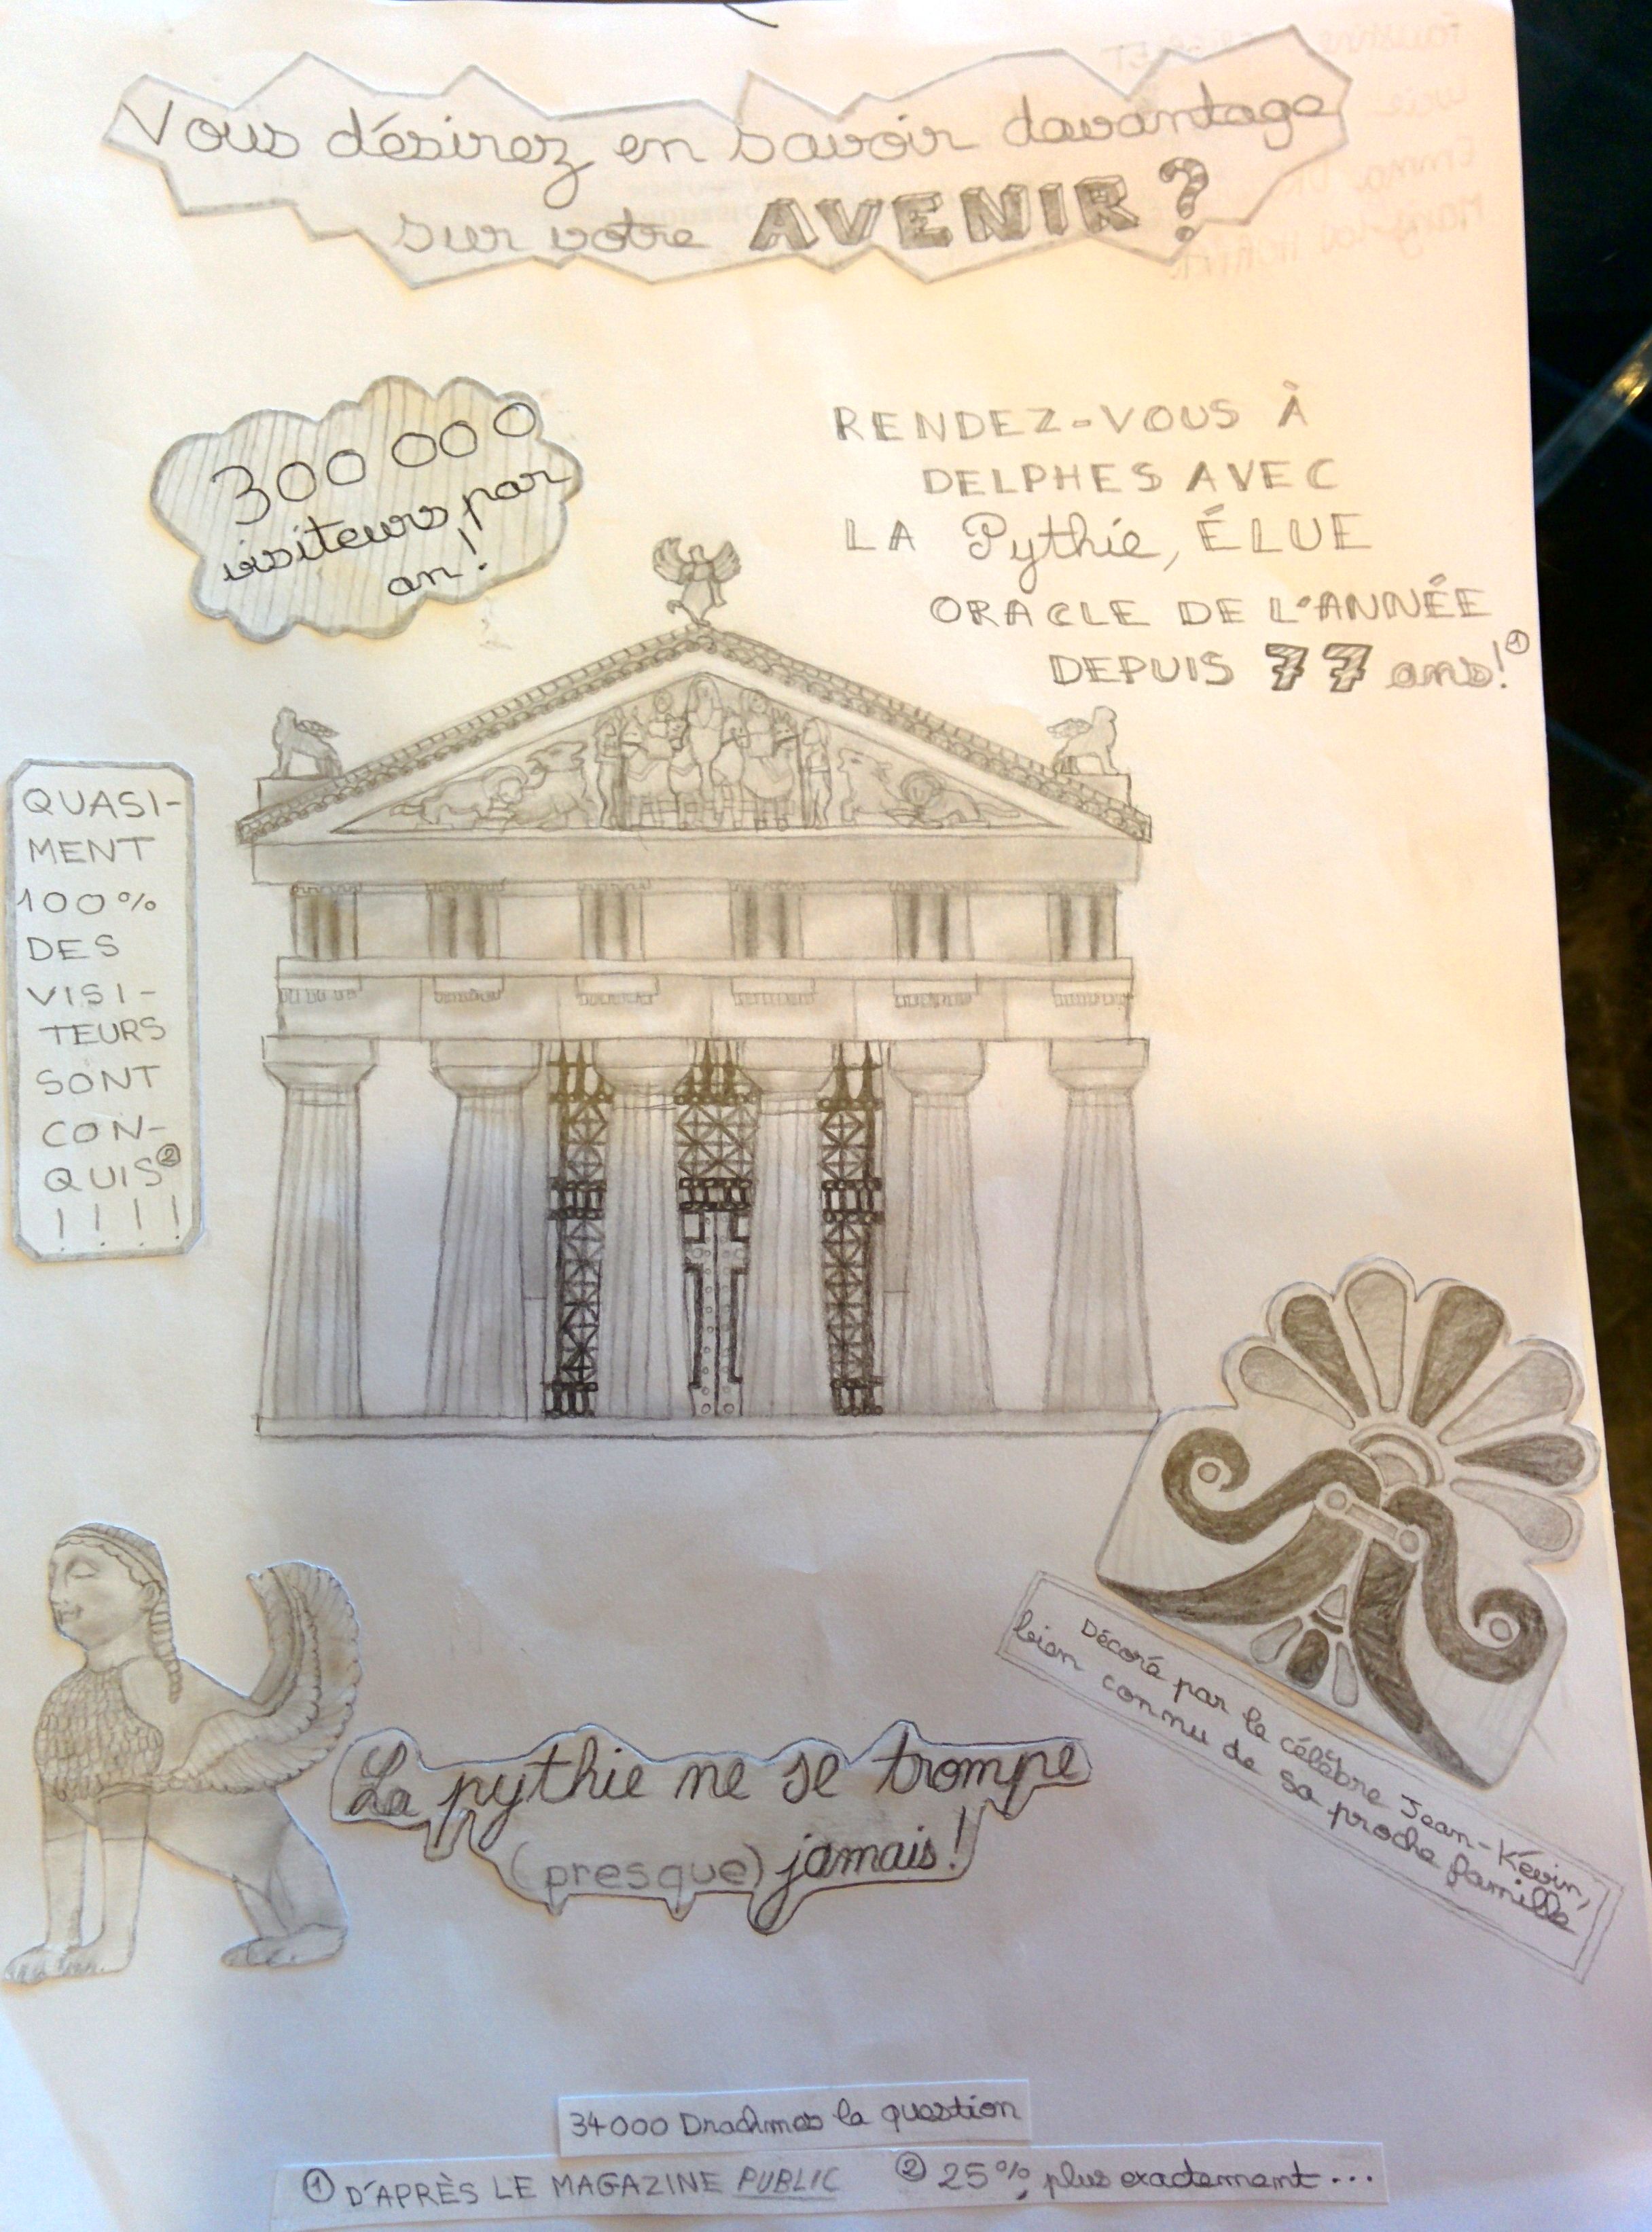 Vous désirez en savoir davantage
sur votre AVENIR ?
300 000
visiteurs par
an !
RENDEZ-VOUS À
DELPHES AVEC
LA Pythie, ÉLUE
ORACLE DE L'ANNÉE
DEPUIS 77 ans! ①
QUASI-
MENT
100%
DES
VISI-
TEURS
SONT
CON-
QUIS ②
! ! ! !
Décoré par le célèbre Jean-Kévin,
bien connu de sa proche famille
La pythie ne se trompe
(presque) jamais!
34000 Drachmes la question
① D'APRÈS LE MAGAZINE PUBLIC ② 25%, plus exactement...